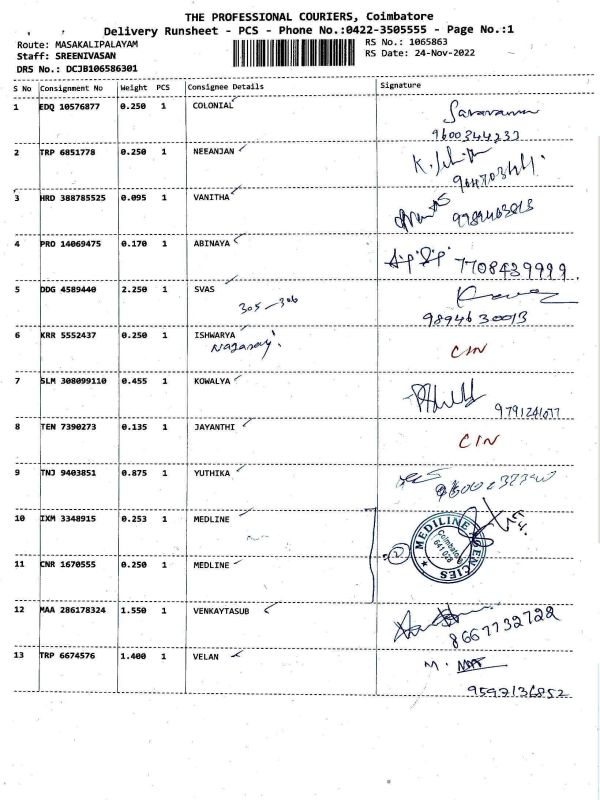 THE PROFESSIONAL COURIERS, Coimbatore
Delivery Runsheet - PCS - Phone No.:0422-3505555 - Page No.:1
Route: MASAKALIPALAYAM
RS No.: 1065863
Staff: SREENIVASAN
RS Date: 24-Nov-2022
DRS No.: DCJB106586301
S No Consignment No Weight PCS Consignee Details Signature
1 EDQ 10576877 0.250 1 COLONIAL
9600344233
2 TRP 6851778 0.250 1 NEEANJAN
3 HRD 388785525 0.095 1 VANITHA
4 PRO 14069475 0.170 1 ABINAYA
7708439999
5 DDG 4589440 2.250 1 SVAS
305-306
9894630013
6 KRR 5552437 0.250 1 ISHWARYA
CIN
7 SLM 308099110 0.455 1 KOWALYA
9791241077
8 TEN 7390273 0.135 1 JAYANTHI
CIN
9 TNJ 9403851 0.875 1 YUTHIKA
10 IXM 3348915 0.253 1 MEDLINE
MEDILINE AGENCIES
Coimbatore
641 028
11 CNR 1670555 0.250 1 MEDLINE
12 MAA 286178324 1.550 1 VENKAYTASUB
8667732728
13 TRP 6674576 1.400 1 VELAN
M.
9597136852